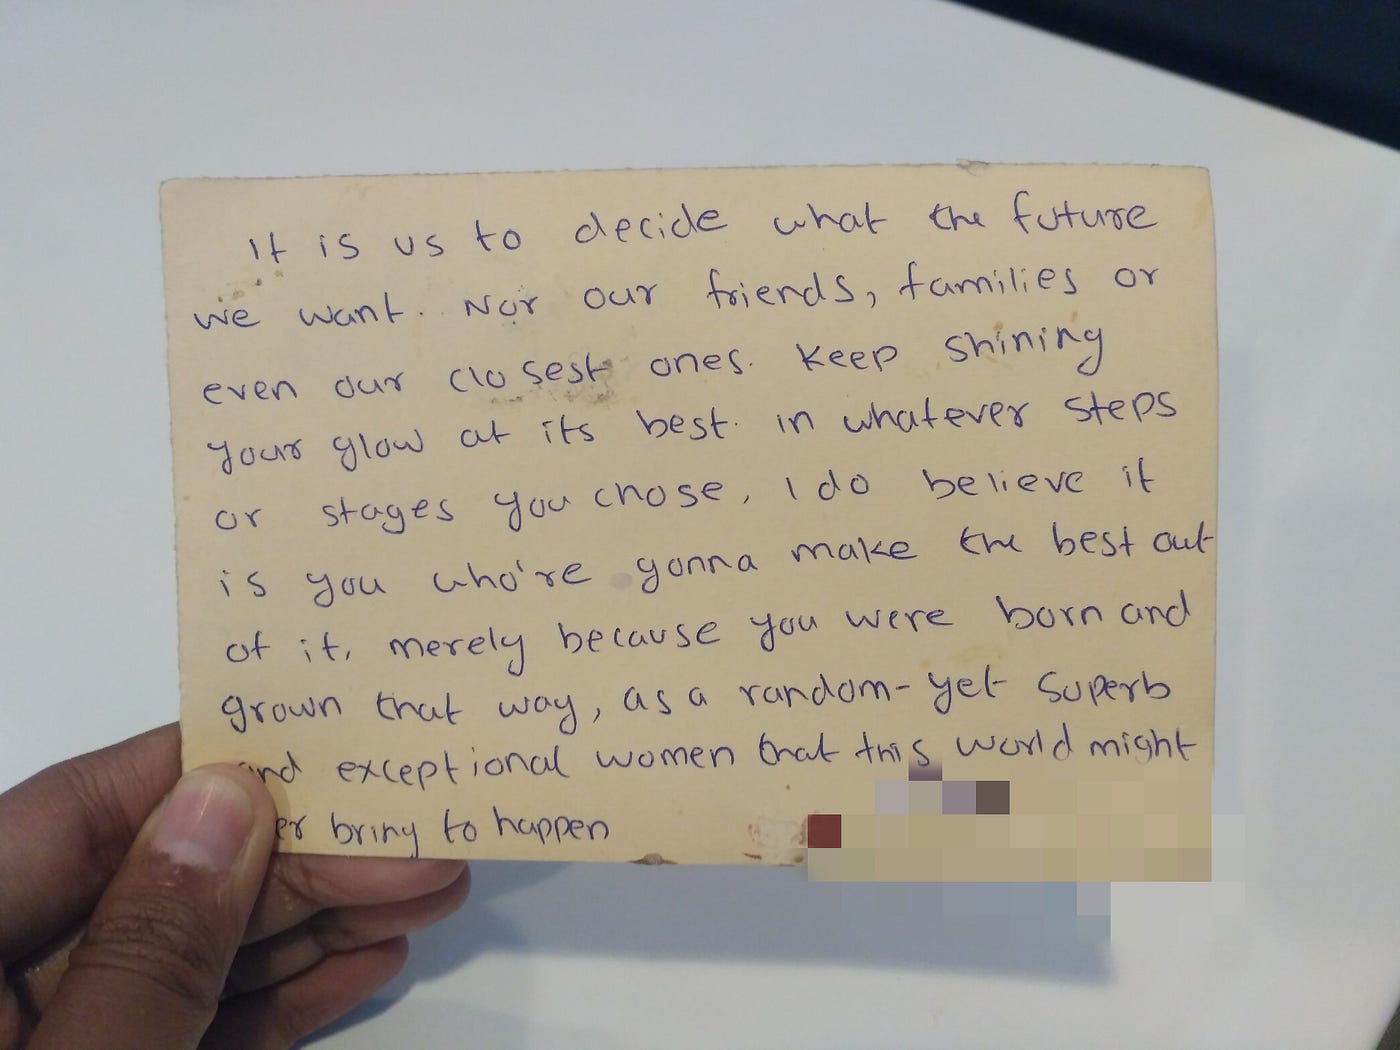 It is us to decide what the future
we want. Nor our friends, families or
even our closest ones. Keep shining
your glow at its best. in whatever steps
or stages you chose, I do believe it
is you who're gonna make the best out
of it, merely because you were born and
grown that way, as a random-yet superb
exceptional women that this world might
bring to happen